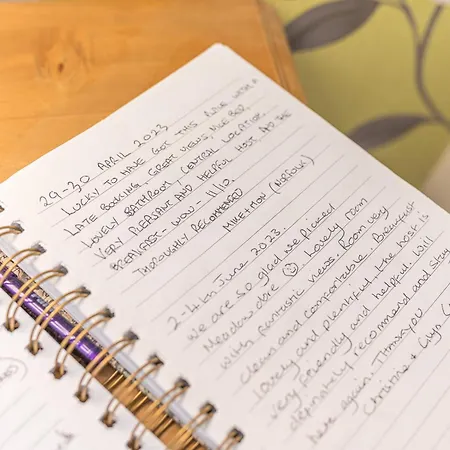 29-30 APRIL 2023
LUCKY TO HAVE GOT THIS PLACE WITH A
LATE BOOKING, GREAT VIEWS, NICE BED,
LOVELY BATHROOM, CENTRAL LOCATION.
VERY PLEASANT AND HELPFUL HOST, AND THE
BREAKFAST - WOW - 11/10.
THOROUGHLY RECOMMENDED
MIKE + MON (NORFOLK)
2-4th June 2023.
We are so glad we picked
Meadowdore ☺ Lovely room
with fantastic views. Room very
clean and comfortable. Breakfast
lovely and plentiful. The host is
very friendly and helpful. Will
definately recommend and stay
here again - Thankyou
Christine +